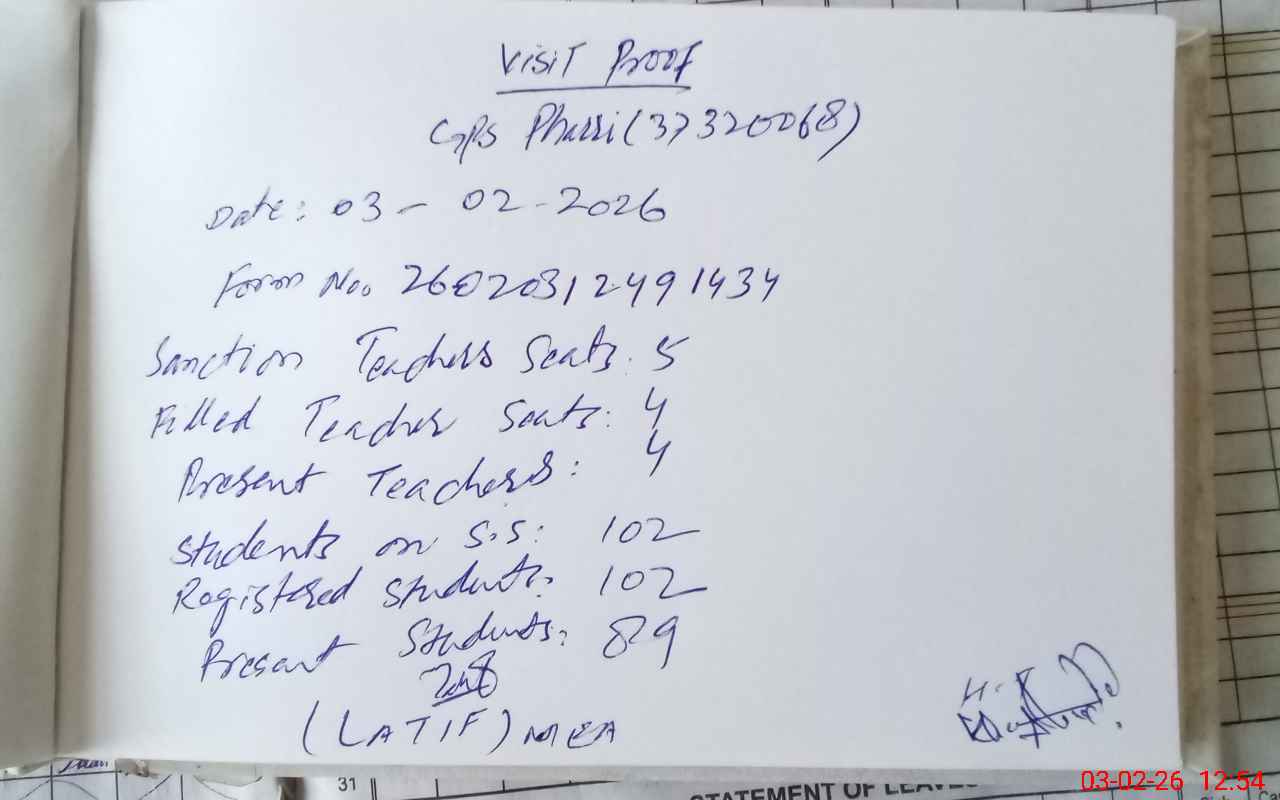 Visit Proof
GPS Pharri (37320068)
Date: 03 - 02 - 2026
Form No. 26020312491434
Sanction Teachers Seats: 5
Filled Teacher Seats: 4
Present Teachers: 4
Students on S.S: 102
Registered Students: 102
Present Students: 89
(LATIF) MEA
H.T
31
STATEMENT OF LEAVE
03-02-26 12:54